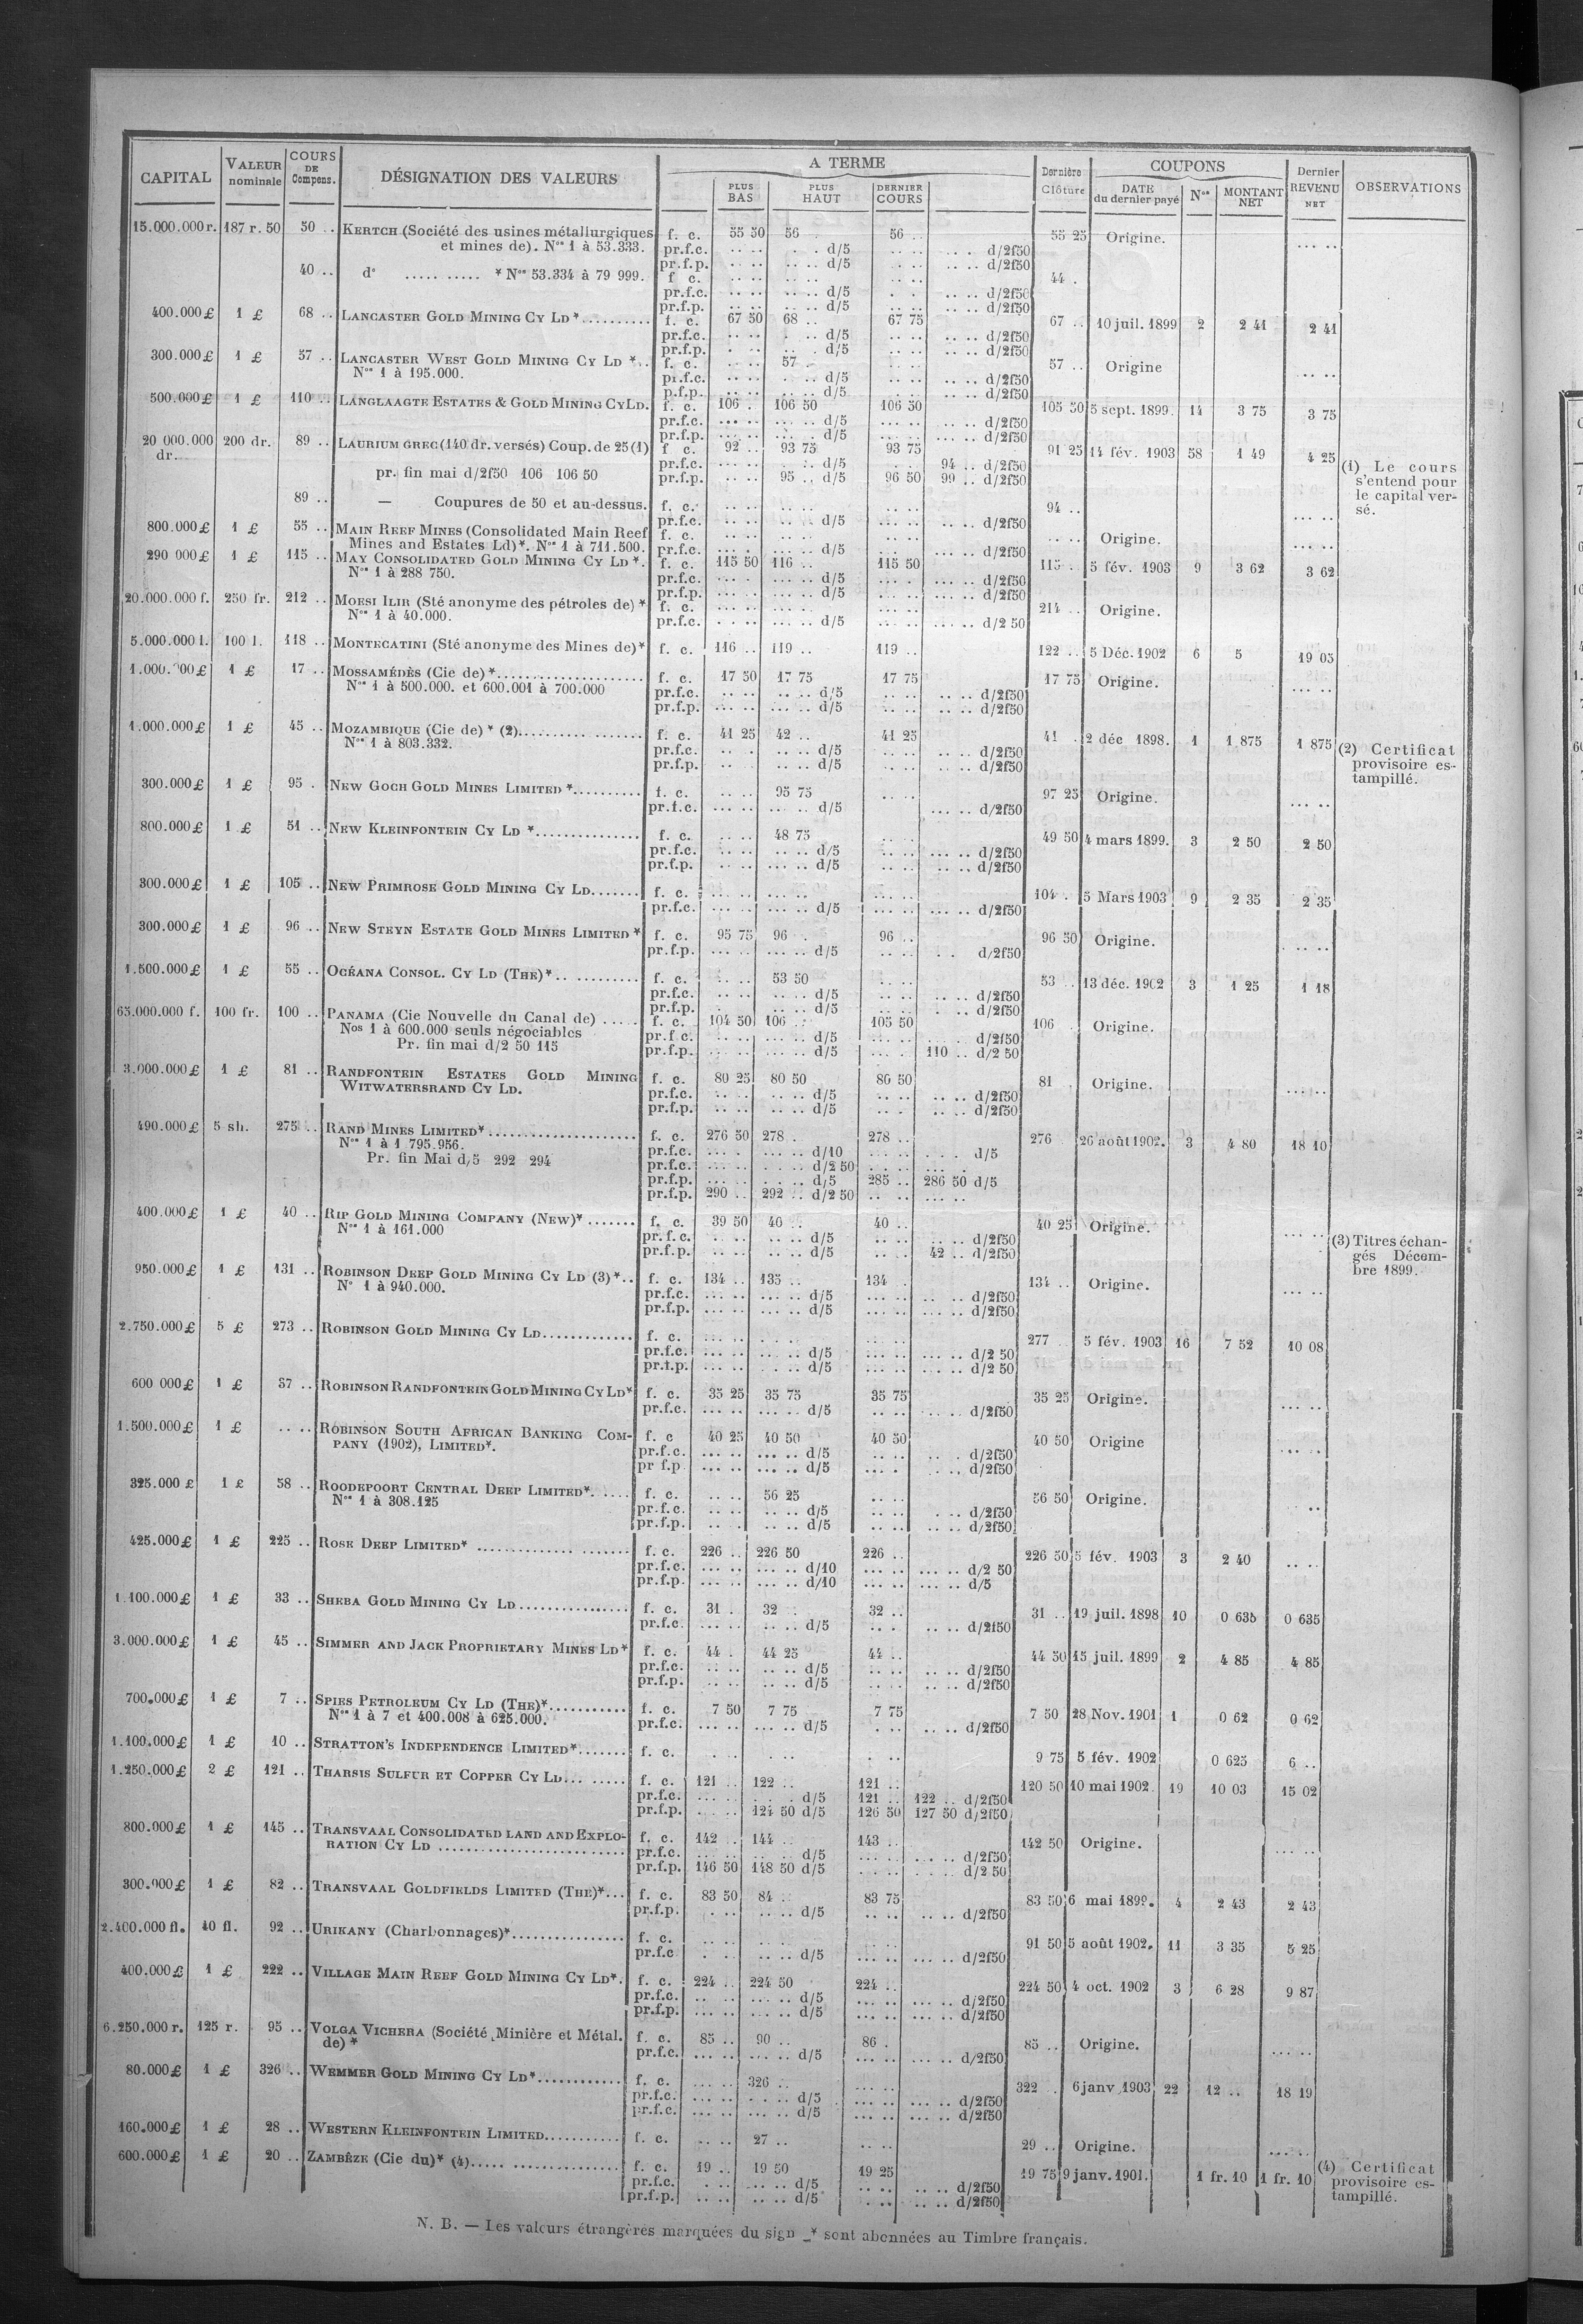 CAPITAL VALEUR nominale COURS DE Compens. DÉSIGNATION DES VALEURS A TERME Dernière Clôture COUPONS Dernier REVENU NET OBSERVATIONS
PLUS BAS PLUS HAUT DERNIER COURS DATE du dernier payé Nos MONTANT NET
15.000.000 r. 187 r. 50 50 .. KERTCH (Société des usines métallurgiques f. c. 55 50 56 56 .. 55 25 Origine. ... ..
et mines de). Nos 1 à 53.333. pr.f.c. .. .. . . d/5 .. .. .. . d/2f50
pr.f.p. .. .. .. .. d/5 . .. .. .. d/2f50
40 .. d° ..... ..... * Nos 53.334 à 79 999. f c. .. .. .. .. .. .. 44 .
pr.f.c. .. .. ... .. d/5 . . .. .. d/2f50
pr.f.p. .. .. ... .. d/5 .. .. .. .. d/2f50
400.000 £ 1 £ 68 .. LANCASTER GOLD MINING CY LD *.......... f. c. 67 50 68 .. 67 75 67 .. 10 juil. 1899 2 2 41 2 41
pr.f.c. .. .. . .. d/5 .. .. .. .. d/2f50
pr.f.p. . .. .. . d/5 .. .. .. .. d/2f50
300.000 £ 1 £ 57 .. LANCASTER WEST GOLD MINING CY LD *... f. c. . .. 57 . .. .. 57 .. Origine ... ..
Nos 1 à 195.000. pr.f.c. .. .. . .. d/5 .. .. .. .. d/2f50
p.f.p. .. .. ... .. d/5 .. .. .. .. d/2f50
500.000 £ 1 £ 110 .. LANGLAAGTE ESTATES & GOLD MINING CY LD. f. c. 106 . 106 50 106 50 105 50 5 sept. 1899. 14 3 75 3 75
pr.f.c. ... .. ... .. d/5 ... .. ... .. d/2f50
pr.f.p. ... .. ... . d/5 ... .. ... .. d/2f50
20 000.000 dr. 200 dr. 89 .. LAURIUM GREC (140 dr. versés) Coup. de 25 (1) f c. 92 .. 93 75 93 75 91 25 14 fév. 1903 58 1 49 4 25
pr.f.c. ... .. . .. d/5 . . 94 .. d/2f50 (1) Le cours
pr. fin mai d/2f50 106 106 50 pr.f.p. .. .. 95 .. d/5 96 50 99 .. d/2f50 s'entend pour
le capital ver-
89 .. — Coupures de 50 et au-dessus. f. c. .. .. .. .. .. .. 94 .. ... .. sé.
pr.f.c. .. .. .. .. d/5 ... .. .. .. d/2f50
800.000 £ 1 £ 55 .. MAIN REEF MINES (Consolidated Main Reef f. c. .. .. .. .. .. .. .. .. Origine. ... ..
Mines and Estates Ld)*. Nos 1 à 711.500. pr.f.c. ... . ... .. d/5 .. . .. .. d/2f50
290 000 £ 1 £ 115 .. MAY CONSOLIDATED GOLD MINING CY LD *. f. c. 115 50 116 .. 115 50 115 . 5 fév. 1903 9 3 62 3 62
Nos 1 à 288 750. pr.f.c. ... . ... .. d/5 ... . ... .. d/2f50
pr.f.p. ... .. ... .. d/5 ... .. ... .. d/2f50
20.000.000 f. 250 fr. 212 .. MOESI ILIR (Sté anonyme des pétroles de) * f. c. ... .. ... .. ... .. 214 .. Origine.
Nos 1 à 40.000. pr.f.c. . . .. ... .. d/5 ... .. ... .. d/2 50
5.000.000 l. 100 l. 118 .. MONTECATINI (Sté anonyme des Mines de)* f. c. 116 .. 119 .. 119 .. 122 .. 5 Déc. 1902 6 5 19 05
1.000.000 £ 1 £ 17 .. MOSSAMÉDÈS (Cie de) *..................... f. c. 17 50 17 75 17 75 17 75 Origine. ... ..
Nos 1 à 500.000. et 600.001 à 700.000 pr.f.c. .. .. .. .. d/5 .. .. .. .. d/2f50
pr.f.p. ... .. ... .. d/5 .. .. .. .. d/2f50
1.000.000 £ 1 £ 45 .. MOZAMBIQUE (Cie de) * (2).......... ....... f. c. 41 25 42 .. 41 25 41 . 2 déc 1898. 1 1 875 1 875 (2) Certificat
Nos 1 à 803.332. pr.f.c. .. . .. .. d/5 .. .. .. .. d/2f50 provisoire es-
pr.f.p. .. .. .. d/5 .. .. .. .. d/2f50 tampillé.
300.000 £ 1 £ 95 . NEW GOCH GOLD MINES LIMITED *.......... f. c. .. .. 95 75 .. .. 97 25 Origine. ... ..
pr.f.c. ... .. ... .. d/5 ... .. d/2f50
800.000 £ 1 £ 51 .. NEW KLEINFONTEIN CY LD *............... f. c. .. .. 48 75 .. .. 49 50 4 mars 1899. 3 2 50 2 50
pr.f.c. .. .. .. .. d/5 .. .. ... .. d/2f50
pr.f.p. .. .. .. .. d/5 .. .. .. .. d/2f50
300.000 £ 1 £ 105 .. NEW PRIMROSE GOLD MINING CY LD....... f. c. ... .. ... .. ... .. 104 . 5 Mars 1903 9 2 35 2 35
pr.f.c. ... .. ... .. d/5 ... .. ... .. d/2f50
300.000 £ 1 £ 96 .. NEW STEYN ESTATE GOLD MINES LIMITED * f. c. 95 75 96 . 96 .. 96 50 Origine. .. ..
pr.f.p. ... .. ... .. d/5 .. .. . . d/2f50
1.500.000 £ 1 £ 55 .. OCÉANA CONSOL. CY LD (THE)*.. ......... f. c. .. .. 53 50 .. .. 53 .. 13 déc. 1902 3 1 25 1 18
pr.f.c. .. .. .. .. d/5 .. .. .. .. d/2f50
pr.f.p. . .. .. .. d/5 .. .. . .. d/2f50
65.000.000 f. 100 fr. 100 .. PANAMA (Cie Nouvelle du Canal de) ..... f. c. 104 50 106 .. 105 50 106 Origine.
Nos 1 à 600.000 seuls négociables pr.f c. .. .. ... .. d/5 ... .. . d/2f50
Pr. fin mai d/2 50 115 pr.f.p. .. .. ... .. d/5 ... . 110 .. d/2 50
3.000.000 £ 1 £ 81 .. RANDFONTEIN ESTATES GOLD MINING f. c. 80 25 80 50 80 50 81 . Origine. ... ..
WITWATERSRAND CY LD. pr.f.c. .. .. .. .. d/5 .. .. .. .. d/2f50
pr.f.p. .. .. .. .. d/5 .. . .. .. d/2f50
490.000 £ 5 sh. 275 .. RAND MINES LIMITED*..................... f. c. 276 50 278 . 278 .. 276 26 août 1902. 3 4 80 18 10
Nos 1 à 1 795.956. pr.f.c. ... . ... .. d/10 ... .. . . . d/5
Pr. fin Mai d/5 292 294 pr.f.c. ... .. . . .. d/2 50 . . .. ... .
pr.f.p. ... .. . . .. d/5 285 .. 286 50 d/5
pr.f.p. 290 .. 292 .. d/2 50 .. .. ... ..
400.000 £ 1 £ 40 .. RIP GOLD MINING COMPANY (NEW)* ....... f. c. 39 50 40 .. 40 .. 40 25 Origine. ... ..
Nos 1 à 161.000 pr.f.c. . .. .. .. d/5 .. .. .. .. d/2f50 (3) Titres échan-
pr.f.p. .. .. .. .. d/5 .. . 42 .. d/2f50 gés Décem-
950.000 £ 1 £ 131 .. ROBINSON DEEP GOLD MINING CY LD (3)*.. f. c. 134 .. 135 .. 134 . 134 .. Origine. ... .. bre 1899.
N° 1 à 940.000. pr.f.c. ... .. ... .. d/5 ... .. .. .. d/2f50
pr.f.p. ... .. ... .. d/5 ... .. ... .. d/2f50
2.750.000 £ 5 £ 273 .. ROBINSON GOLD MINING CY LD............. f. c. ... .. . . .. ... .. 277 5 fév. 1903 16 7 52 10 08
pr.f.c. ... .. ... .. d/5 ... .. ... .. d/2 50
pr.f.p. ... .. . . .. d/5 ... .. ... .. d/2 50
600 000 £ 1 £ 37 .. ROBINSON RANDFONTEIN GOLD MINING CY LD* f. c. 35 25 35 75 35 75 35 25 Origine. ... ..
pr.f.c. ... .. ... .. d/5 .. .. .. .. d/2f50
1.500.000 £ 1 £ .. .. ROBINSON SOUTH AFRICAN BANKING COM- f. c 40 25 40 50 40 50 40 50 Origine ... ..
PANY (1902), LIMITED*. pr.f.c. ... .. ... .. d/5 .. .. .. . d/2f50
pr f.p. ... .. ... .. d/5 ... . . .. d/2f50
325.000 £ 1 £ 58 .. ROODEPOORT CENTRAL DEEP LIMITED*. ..... f. c. .. .. 56 25 .. .. 56 50 Origine. ..
Nos 1 à 308.125 pr.f.c. .. .. .. .. d/5 .. .. . .. d/2f50
pr.f.p. .. . .. .. d/5 .. .. .. .. d/2f50
425.000 £ 1 £ 225 .. ROSE DEEP LIMITED* .............. ....... f. c. 226 .. 226 50 226 .. 226 50 5 fév. 1903 3 2 40 .. ..
pr.f.c. ... .. ... .. d/10 ... .. ... .. d/2 50
pr.f.p. ... .. ... .. d/10 ... .. ... .. d/5
1.100.000 £ 1 £ 33 .. SHEBA GOLD MINING CY LD................ f. c. 31 . 32 . 32 .. 31 .. 19 juil. 1898 10 0 635 0 635
pr.f.c. ... .. .. .. d/5 .. . .. .. d/2f50
3.000.000 £ 1 £ 45 .. SIMMER AND JACK PROPRIETARY MINES LD* f. c. 44 . 44 25 44 .. 44 50 15 juil. 1899 2 4 85 4 85
pr.f.c. .. .. .. .. d/5 .. .. .. .. d/2f50
pr.f.p. .. .. .. .. d/5 .. .. .. .. d/2f50
700.000 £ 1 £ 7 .. SPIES PETROLEUM CY LD (THE)*........... f. c. 7 50 7 75 7 75 7 50 28 Nov. 1901 1 0 62 0 62
Nos 1 à 7 et 400.008 à 625.000. pr.f.c. ... .. ... .. d/5 . .. .. .. d/2f50
1.100.000 £ 1 £ 10 .. STRATTON'S INDEPENDENCE LIMITED*....... f. c. . . . .. . .. 9 75 5 fév. 1902 0 625 6 ..
1.250.000 £ 2 £ 121 .. THARSIS SULFUR ET COPPER CY LD... ...... f. c. 121 .. 122 .. 121 .. 120 50 10 mai 1902. 19 10 03 15 02
pr.f.c. ... .. . . . d/5 121 .. 122 .. d/2f50
pr.f.p. . . .. 124 50 d/5 126 50 127 50 d/2f50
800.000 £ 1 £ 145 .. TRANSVAAL CONSOLIDATED LAND AND EXPLO- f. c. 142 .. 144 .. 143 .. 142 50 Origine. ... ..
RATION CY LD .......................... pr.f.c. ... .. .. .. d/5 ... .. ... .. d/2f50
pr.f.p. 146 50 148 50 d/5 ... .. . . .. d/2 50
300.000 £ 1 £ 82 .. TRANSVAAL GOLDFIELDS LIMITED (THE)*... f. c. 83 50 84 .. 83 75 83 50 6 mai 1899. 4 2 43 2 43
pr.f.p. . .. .. .. d/5 .. .. .. .. d/2f50
2.400.000 fl. 40 fl. 92 .. URIKANY (Charbonnages)*................. f. c. .. .. .. .. .. .. 91 50 5 août 1902. 11 3 35 5 25
pr.f.c . .. .. .. d/5 .. .. ... .. d/2f50
400.000 £ 1 £ 222 .. VILLAGE MAIN REEF GOLD MINING CY LD*. f. c. 224 .. 224 50 224 .. 224 50 4 oct. 1902 3 6 28 9 87
pr.f.c. .. .. ... .. d/5 ... .. ... .. d/2f50
pr.f.p. ... .. ... .. d/5 ... .. ... .. d/2f50
6.250.000 r. 125 r. 95 .. VOLGA VICHERA (Société Minière et Métal. f. c. 85 .. 90 .. 86 . 85 .. Origine. ... ..
de) * pr.f.c. ... .. ... .. d/5 ... .. ... .. d/2f50
80.000 £ 1 £ 326 .. WEMMER GOLD MINING CY LD*............. f. c. ... .. 326 .. ... .. 322 . 6 janv 1903 22 12 .. 18 19
pr.f.c. ... .. . . .. d/5 ... .. ... .. d/2f50
pr.f.c. ... .. ... .. d/5 ... .. ... .. d/2f50
160.000 £ 1 £ 28 .. WESTERN KLEINFONTEIN LIMITED........... f. c. .. .. 27 .. .. .. 29 .. Origine. ... ..
600.000 £ 1 £ 20 .. ZAMBÈZE (Cie du)* (4)..... ................ f. c. 19 .. 19 50 19 25 19 75 9 janv. 1901. 1 fr. 10 1 fr. 10 (4) Certificat
pr.f.c. . .. .. .. d/5 .. .. .. .. d/2f50 provisoire es-
pr.f.p. .. .. .. .. d/5 . .. .. .. d/2f50 tampillé.
N. B. — Les valeurs étrangères marquées du sign _* sont abonnées au Timbre français.